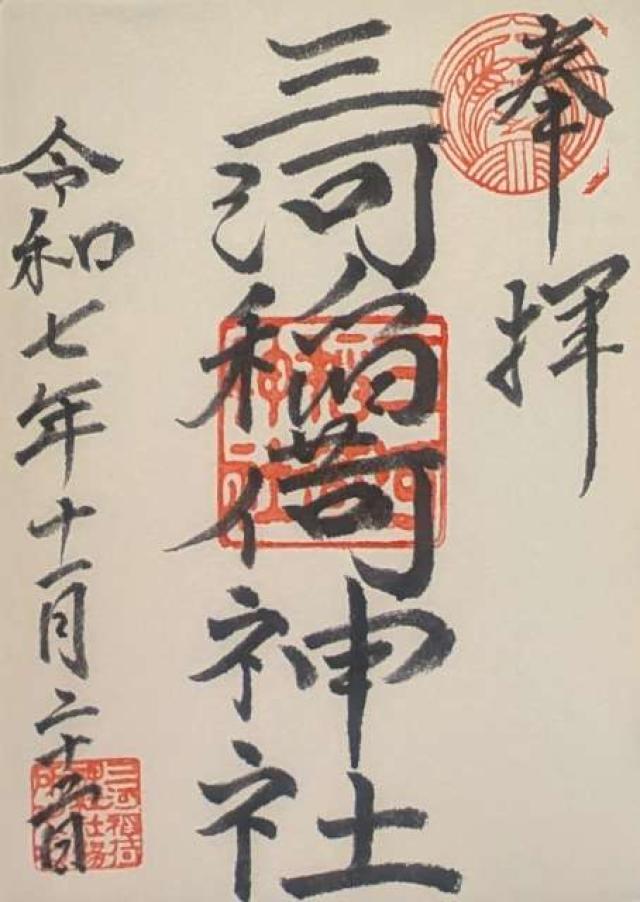 奉拝
三河稲荷神社
三河
稲荷
神社
令和七年十一月二十五日
三河稲荷